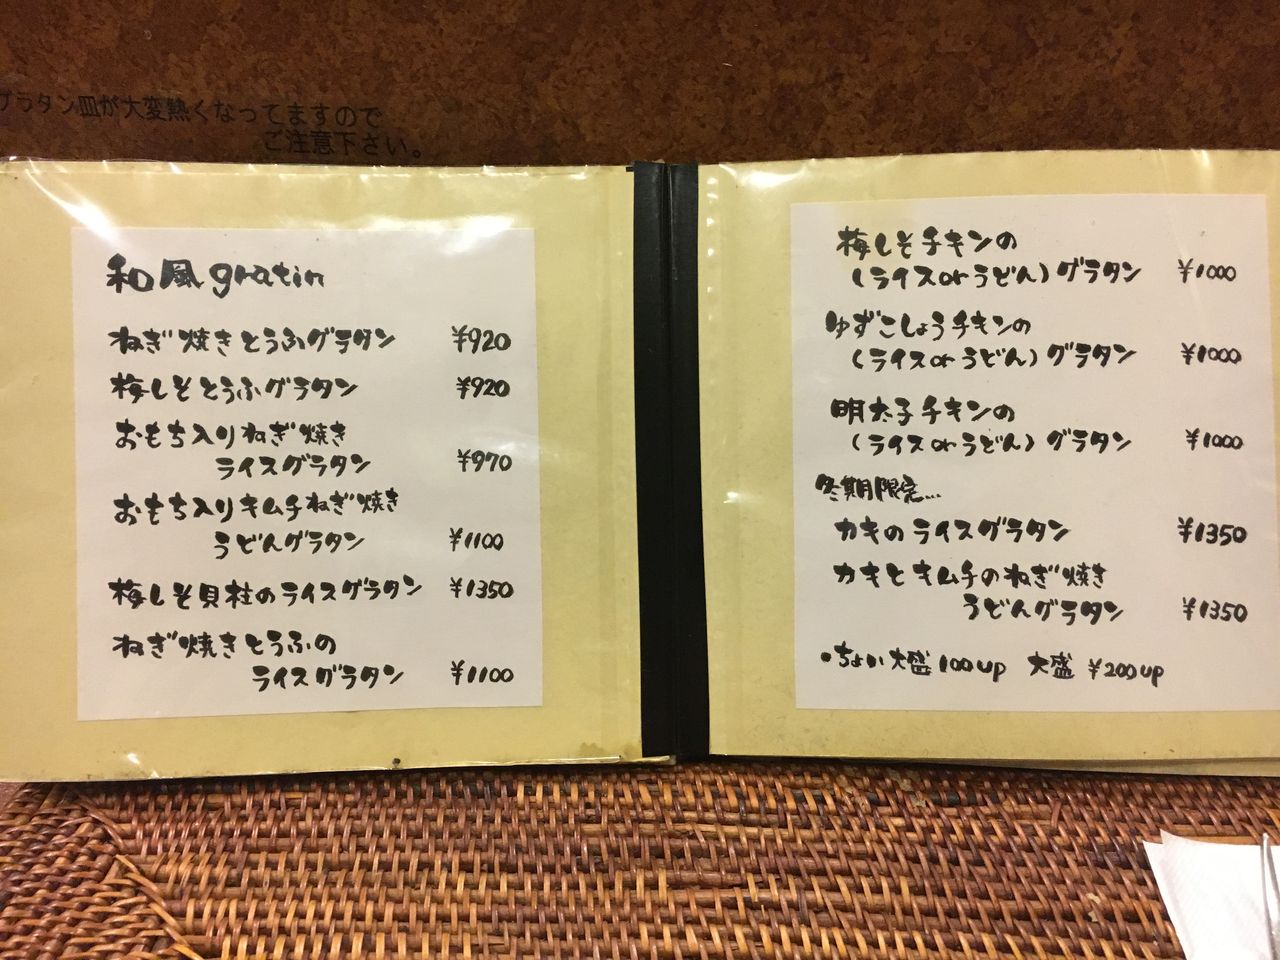 グラタン皿が大変熱くなってますので
ご注意下さい。
和風gratin
ねぎ焼きとうふグラタン ¥920
梅しそとうふグラタン ¥920
おもち入りねぎ焼き
ライスグラタン ¥970
おもち入りキムチねぎ焼き
うどんグラタン ¥1100
梅しそ貝柱のライスグラタン ¥1350
ねぎ焼きとうふの
ライスグラタン ¥1100
梅しそチキンの
(ライスorうどん)グラタン ¥1000
ゆずこしょうチキンの
(ライスorうどん)グラタン ¥1000
明太子チキンの
(ライスorうどん)グラタン ¥1000
冬期限定...
カキのライスグラタン ¥1350
カキとキムチのねぎ焼き
うどんグラタン ¥1350
•ちょい大盛100up 大盛¥200up